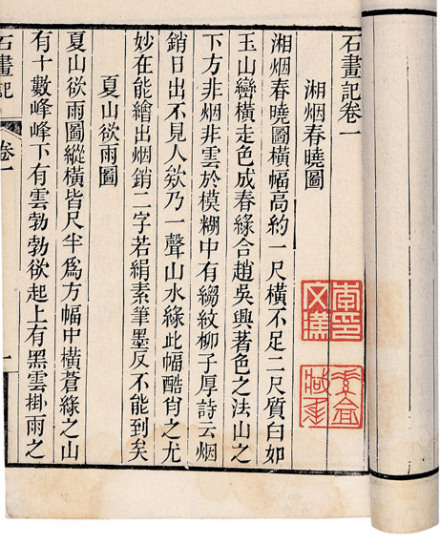 石畫記卷一
湘烟春曉圖
湘烟春曉圖橫幅高約一尺橫不足二尺質白如
玉山巒橫走色成春綠合趙吳興著色之法山之
下方非烟非雲於模糊中有縐紋柳子厚詩云烟
銷日出不見人欸乃一聲山水綠此幅酷肖之尤
妙在能繪出烟銷二字若絹素筆墨反不能到矣
夏山欲雨圖
夏山欲雨圖縱橫皆尺半爲方幅中橫蒼綠之山
有十數峰峰下有雲勃勃欲起上有黑雲掛雨之
石畫記 卷一 一